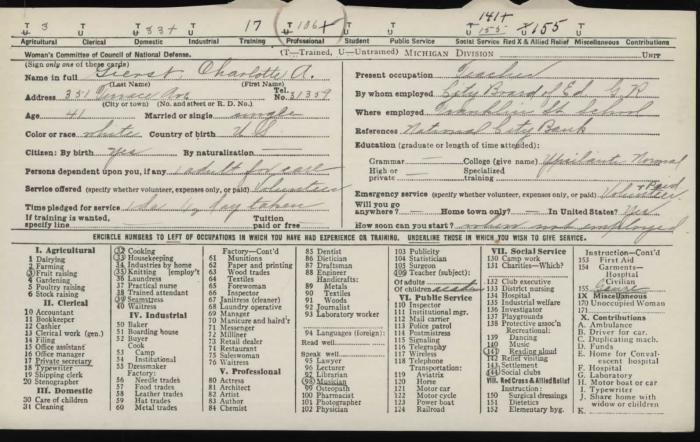 T 3 T 33+ T 17 T 106+ T T T 141+ 155 T 155
U U U U U U
Agricultural Clerical Domestic Industrial Training Professional Student Public Service Social Service Red X & Allied Relief Miscellaneous Contributions
Woman's Committee of Council of National Defense. (T—Trained, U—Untrained) MICHIGAN DIVISION UNIT
(Sign only one of these cards)
Name in full Charlotte A.
(Last Name) (First Name)
Address 351 Terrace Ave Tel. No. 31359
(City or town) (No. and street or R. D. No.)
Age 41 Married or single single
Color or race white Country of birth U S
Citizen: By birth yes By naturalization —
Persons dependent upon you, if any 1 adult for care
Service offered (specify whether volunteer, expenses only, or paid) Volunteer
Time pledged for service
If training is wanted, specify line Tuition paid or free
Present occupation Teacher
By whom employed City Board of Ed G R
Where employed Franklin St School
References National City Bank
Education (graduate or length of time attended):
Grammar — College (give name) Ypsilanti Normal
High or private — Specialized training —
Emergency service (specify whether volunteer, expenses only, or paid) Volunteer + Paid
Will you go anywhere? — Home town only? — In United States? Yes
How soon can you start? when not employed
ENCIRCLE NUMBERS TO LEFT OF OCCUPATIONS IN WHICH YOU HAVE HAD EXPERIENCE OR TRAINING. UNDERLINE THOSE IN WHICH YOU WISH TO GIVE SERVICE.
I. Agricultural
1 Dairying
2 Farming
3 Fruit raising
4 Gardening
5 Poultry raising
6 Stock raising
II. Clerical
10 Accountant
11 Bookkeeper
12 Cashier
13 Clerical work (gen.)
14 Filing
15 Office assistant
16 Office manager
17 Private secretary
18 Typewriter
19 Shipping clerk
20 Stenographer
III. Domestic
30 Care of children
31 Cleaning
32 Cooking
33 Housekeeping
34 Industries by home
35 Knitting [employ't
36 Laundress
37 Practical nurse
38 Trained attendant
39 Seamstress
40 Waitress
IV. Industrial
50 Baker
51 Boarding house
52 Buyer
Cook
53 Camp
54 Institutional
55 Dressmaker
Factory:
56 Needle trades
57 Food trades
58 Leather trades
59 Hat trades
60 Metal trades
Factory—Cont'd
61 Munitions
62 Paper and printing
63 Wood trades
64 Textiles
65 Forewoman
66 Inspector
67 Janitress (cleaner)
68 Laundry operative
69 Manager
70 Manicure and haird'r
71 Messenger
72 Milliner
73 Retail dealer
74 Restaurant
75 Saleswoman
76 Waitress
V. Professional
80 Actress
81 Architect
82 Artist
83 Author
84 Chemist
85 Dentist
86 Dietician
87 Draftsman
88 Engineer
Handicrafts:
89 Metals
90 Textiles
91 Woods
92 Journalist
93 Laboratory worker
94 Languages (foreign):
Read well
Speak well
95 Lawyer
96 Lecturer
97 Librarian
98 Musician
99 Osteopath
100 Pharmacist
101 Photographer
102 Physician
103 Publicity
104 Statistician
105 Surgeon
106 Teacher (subject):
Of adults
Of children
VI. Public Service
110 Inspector
111 Institutional mgr.
112 Mail carrier
113 Police patrol
114 Postmistress
115 Signaling
116 Telegraphy
117 Wireless
118 Telephone
Transportation:
119 Aviatrix
120 Horse
121 Motor car
122 Motor cycle
123 Power boat
124 Railroad
VII. Social Service
130 Camp work
131 Charities—Which?
132 Club executive
133 District nursing
134 Hospital
135 Industrial welfare
136 Investigator
137 Playgrounds
138 Protective assoc'n
Recreational:
139 Dancing
140 Music
141 Reading aloud
142 Relief visiting
143 Settlement
144 Social clubs
VIII. Red Cross & Allied Relief
Instruction:
150 Surgical dressings
151 Dietetics
152 Elementary hyg.
Instruction—Cont'd
153 First Aid
154 Garments—
Hospital
Civilian
155 Gauze
IX Miscellaneous
170 Unoccupied Woman
171
X. Contributions
A. Ambulance
B. Driver for car.
C. Duplicating mach.
D. Funds
E. Home for Convalescent hospital
F. Hospital
G. Laboratory
H. Motor boat or car
I. Typewriter
J. Share home with widow or children
K.